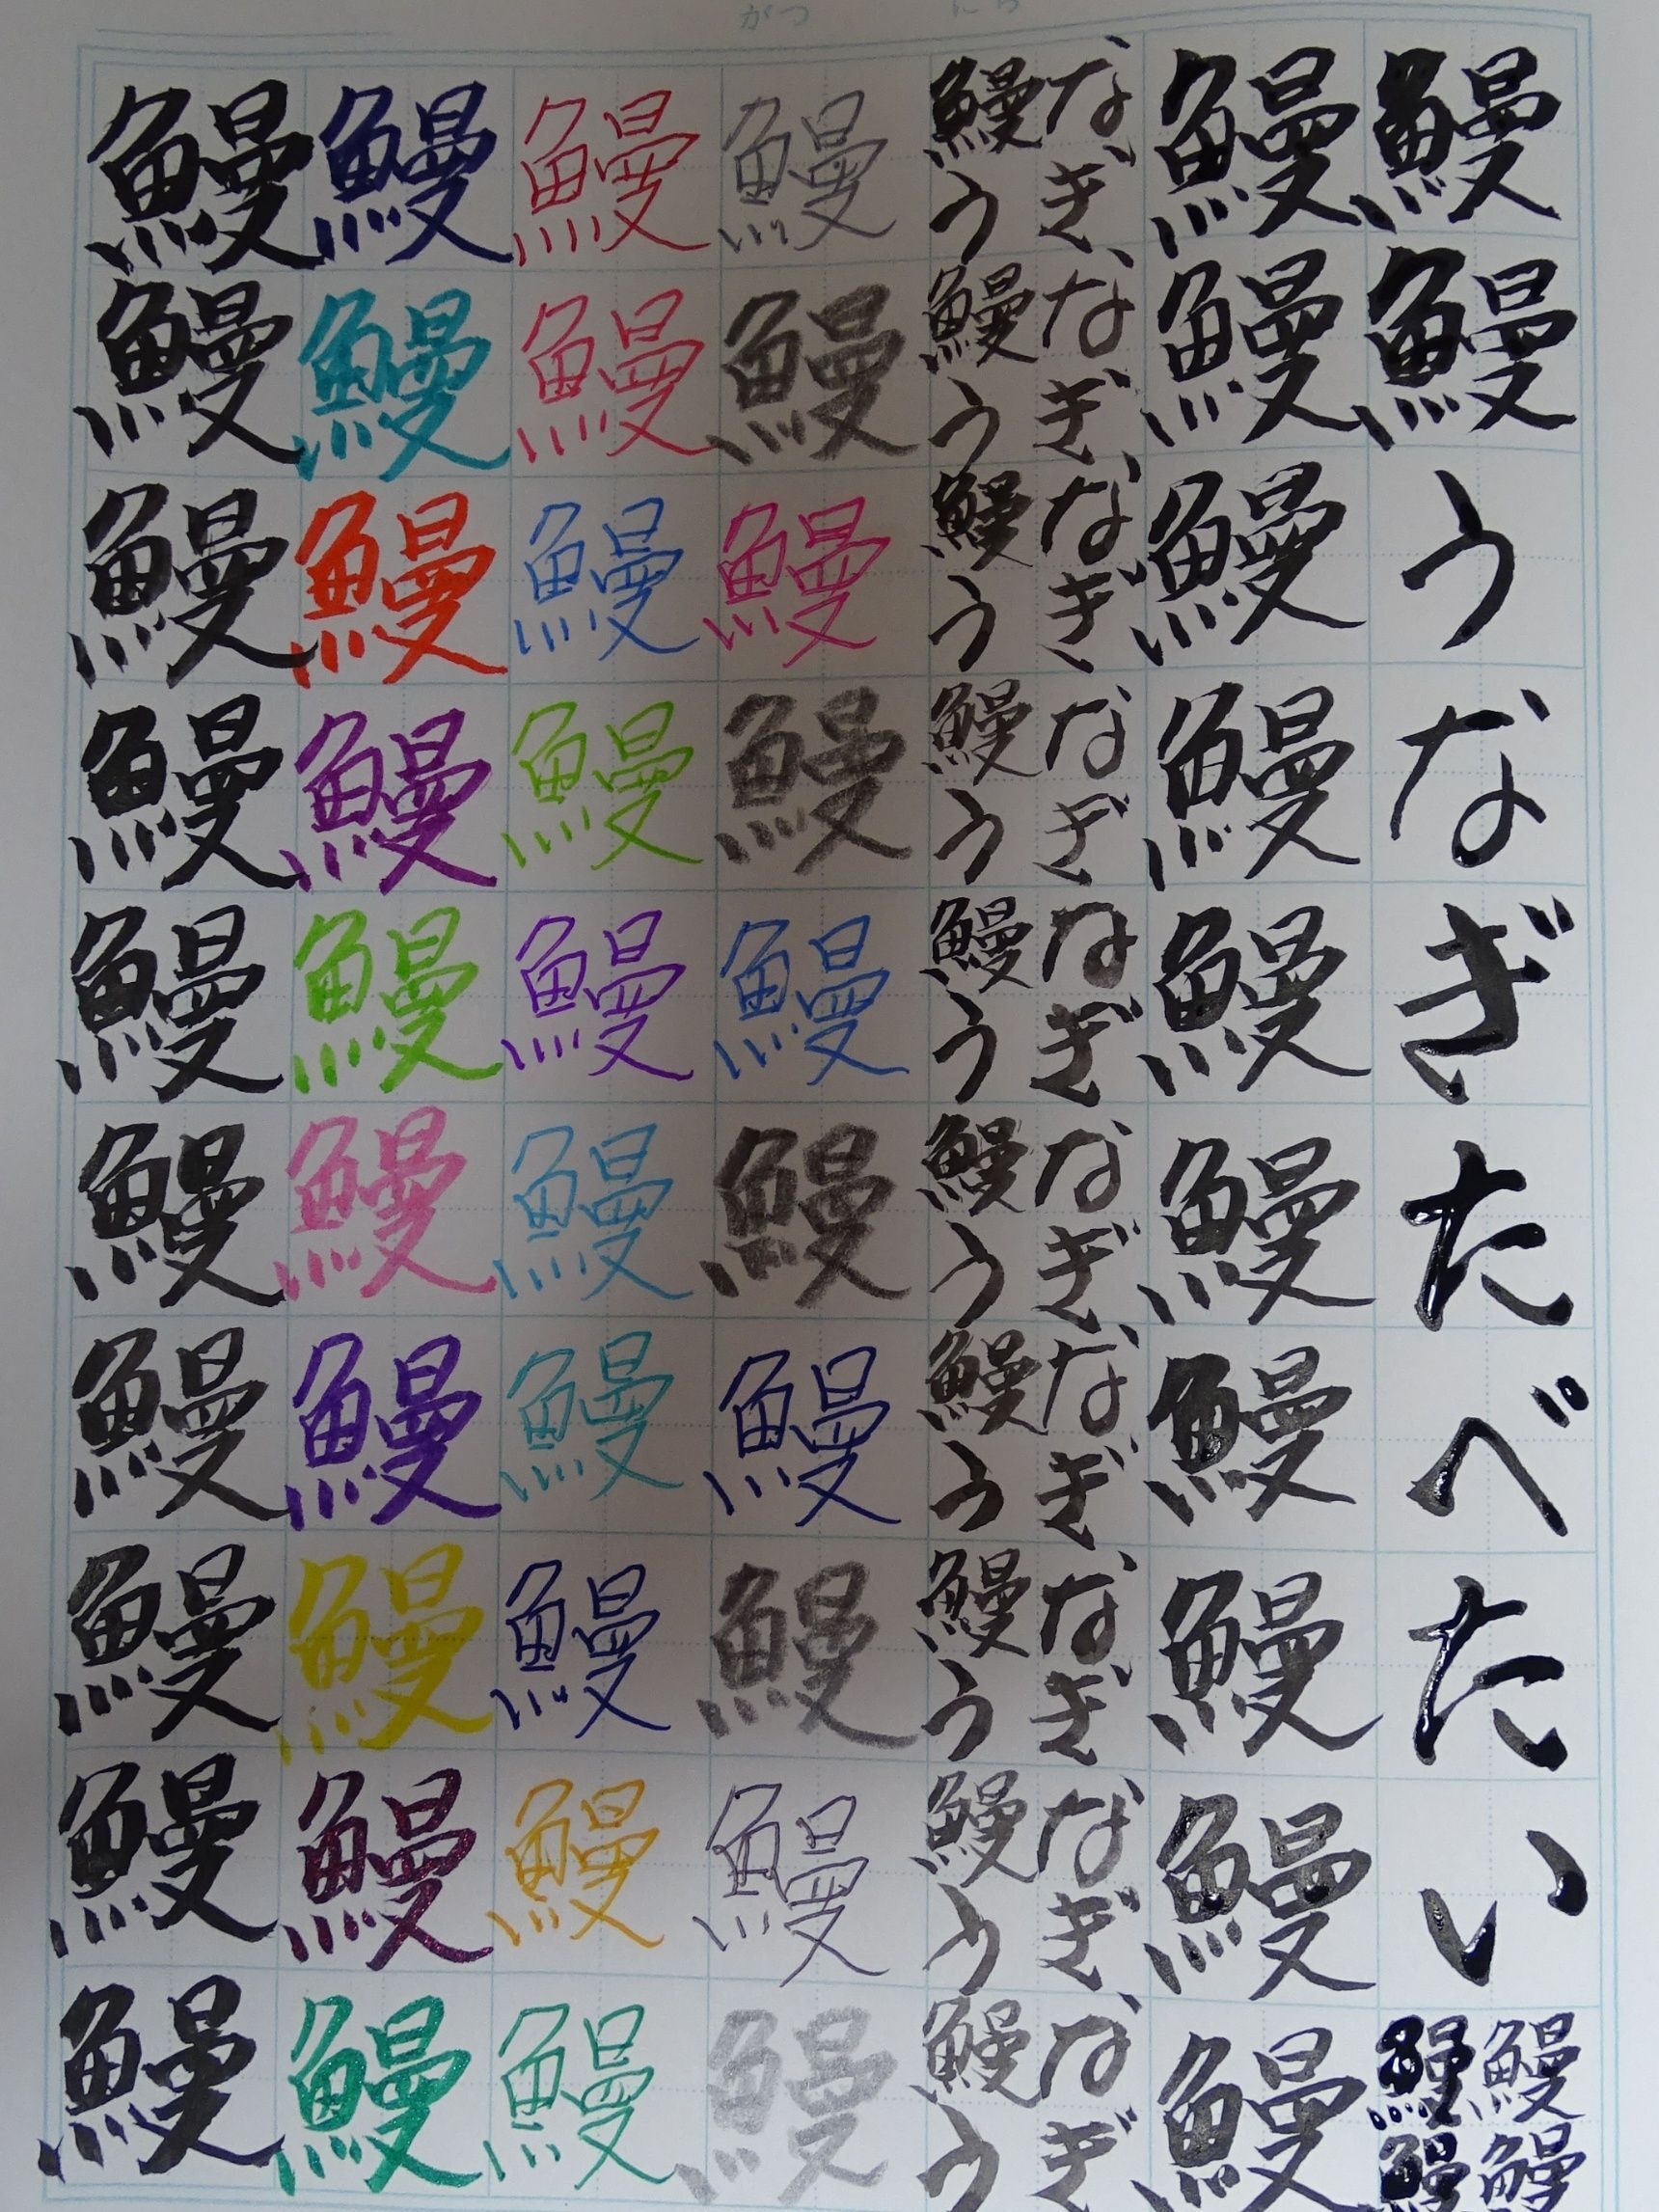 がつ にち
鰻鰻うなぎたべたい鰻鰻鰻鰻
鰻鰻鰻鰻鰻鰻鰻鰻鰻鰻
鰻うなぎ鰻うなぎ鰻うなぎ鰻うなぎ鰻うなぎ鰻うなぎ鰻うなぎ鰻うなぎ鰻うなぎ鰻うなぎ
鰻鰻鰻鰻鰻鰻鰻鰻鰻鰻
鰻鰻鰻鰻鰻鰻鰻鰻鰻鰻
鰻鰻鰻鰻鰻鰻鰻鰻鰻鰻
鰻鰻鰻鰻鰻鰻鰻鰻鰻鰻